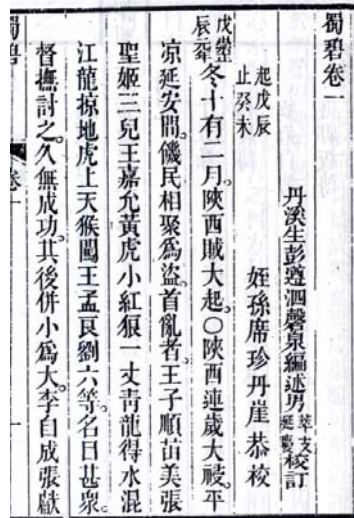 蜀碧卷一
丹溪生彭遵泗磬泉編述男萃支延慶校訂
起戊辰止癸未
姪孫席珍丹崖恭校
戊辰冬十有二月陝西賊大起○陝西連歲大祲平
凉延安間饑民相聚爲盜首亂者王子順苗美張
聖姬三兒王嘉允黃虎小紅狼一丈青龍得水混
江龍掠地虎上天猴闖王孟良劉六等名目甚衆
督撫討之久無成功其後併小爲大李自成張獻
蜀碧 卷一 一